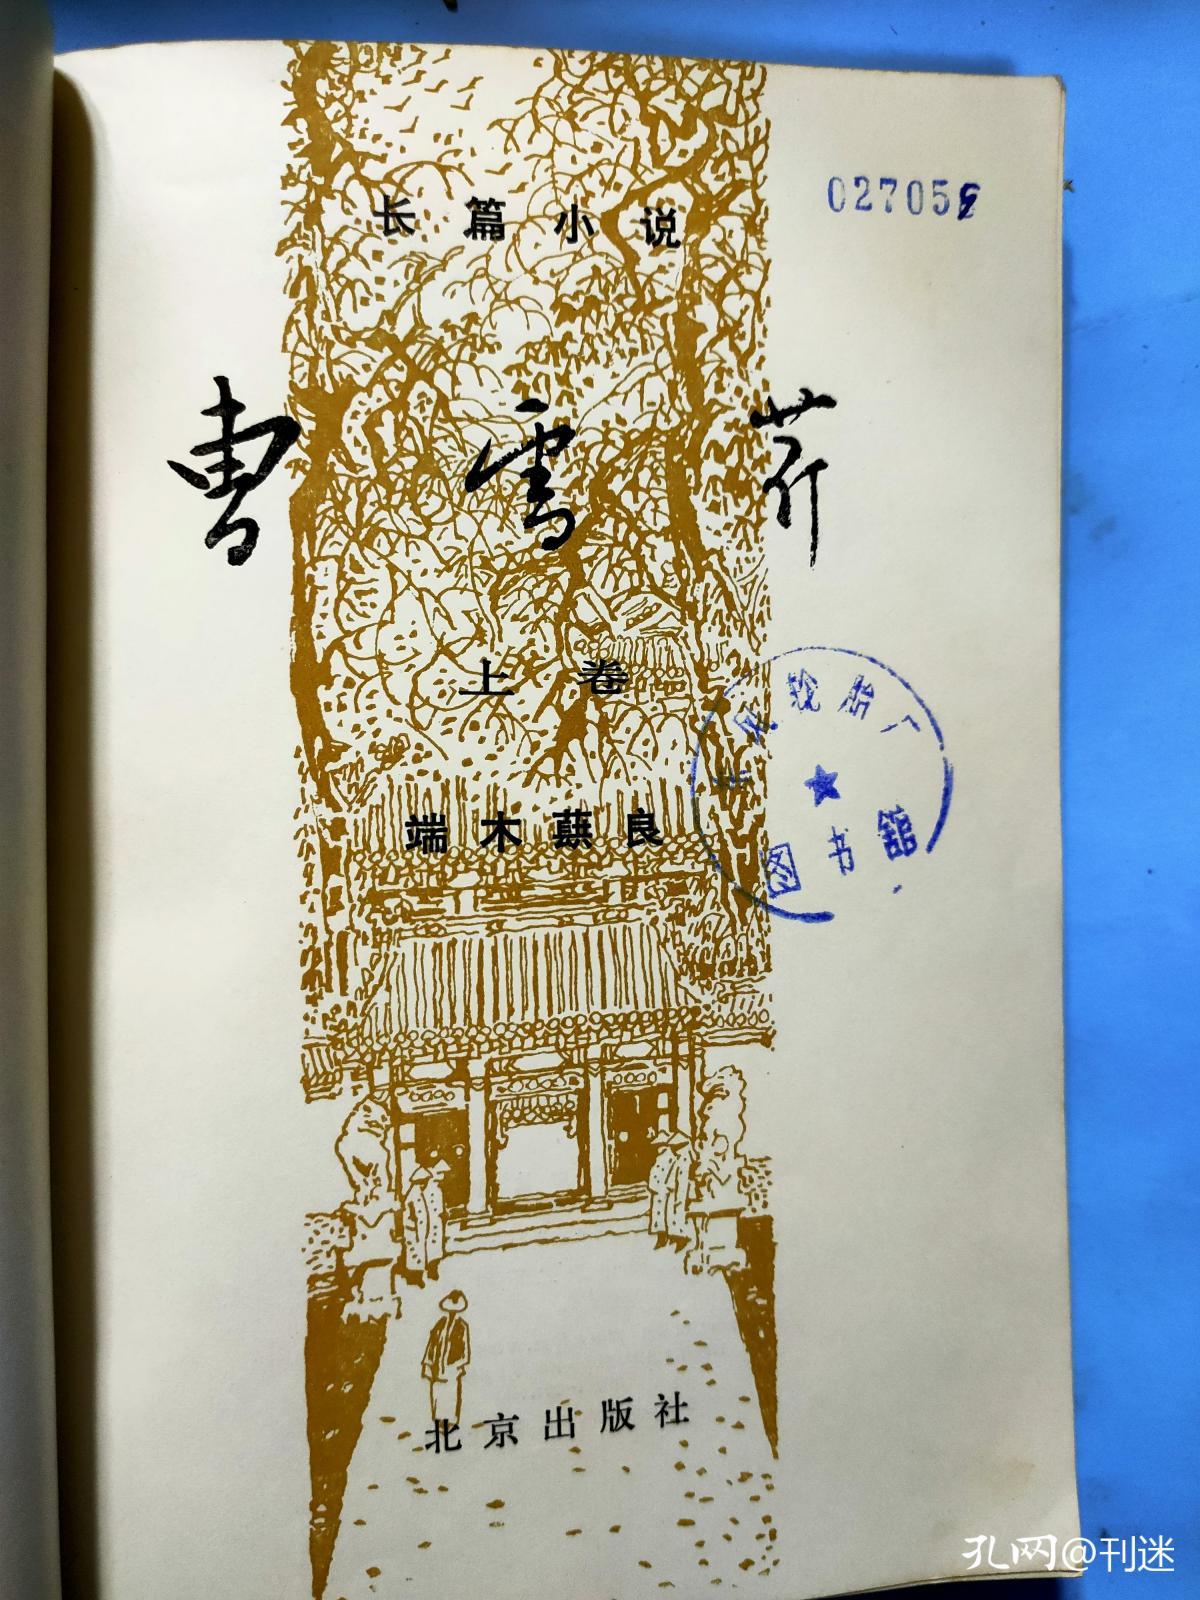 长篇小说
02705
曹雪芹
上卷
风轮胎厂
图书馆
端木蕻良
北京出版社
孔网@刊迷